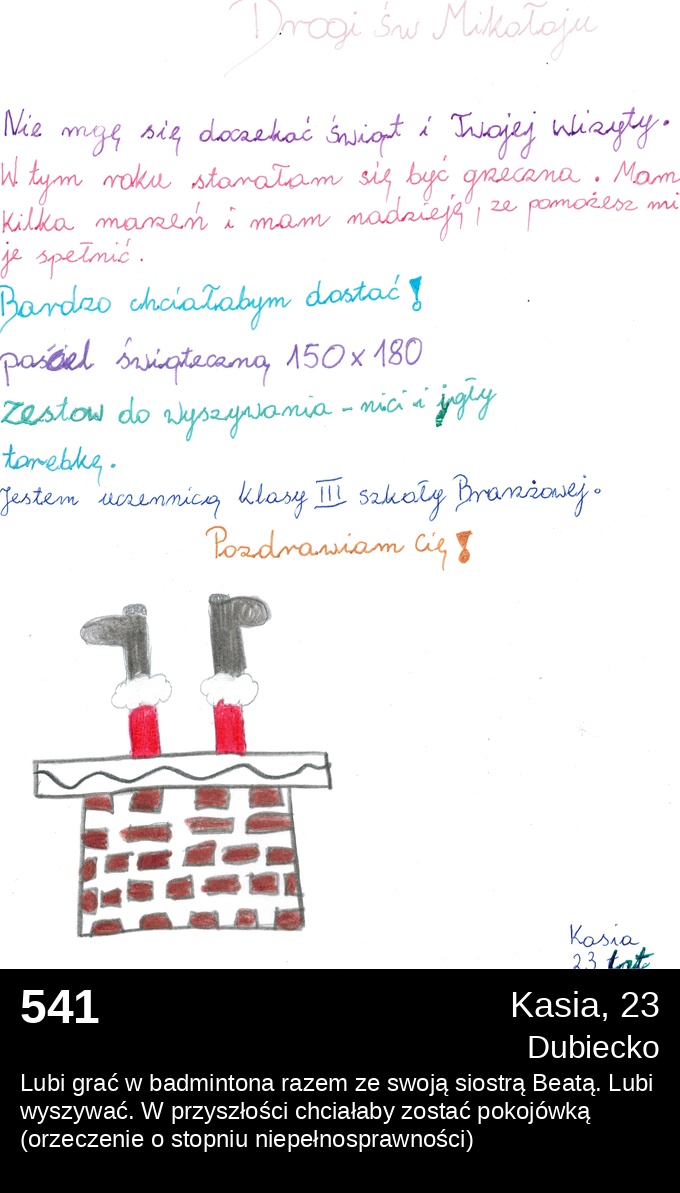 Drogi św Mikołaju
Nie mgę się doczekać świąt i Twojej wizyty.
W tym roku starałam się być grzeczna. Mam
kilka marzeń i mam nadzieję, ze pomożesz mi
je spełnić.
Bardzo chciałabym dostać!
pościel świąteczną 150x180
zestaw do wyszywania - nici i igły
torebkę.
Jestem uczennicą klasy III szkoły Branżowej.
Pozdrawiam Cię!
Kasia
23 lat
541
Kasia, 23
Dubiecko
Lubi grać w badmintona razem ze swoją siostrą Beatą. Lubi
wyszywać. W przyszłości chciałaby zostać pokojówką
(orzeczenie o stopniu niepełnosprawności)